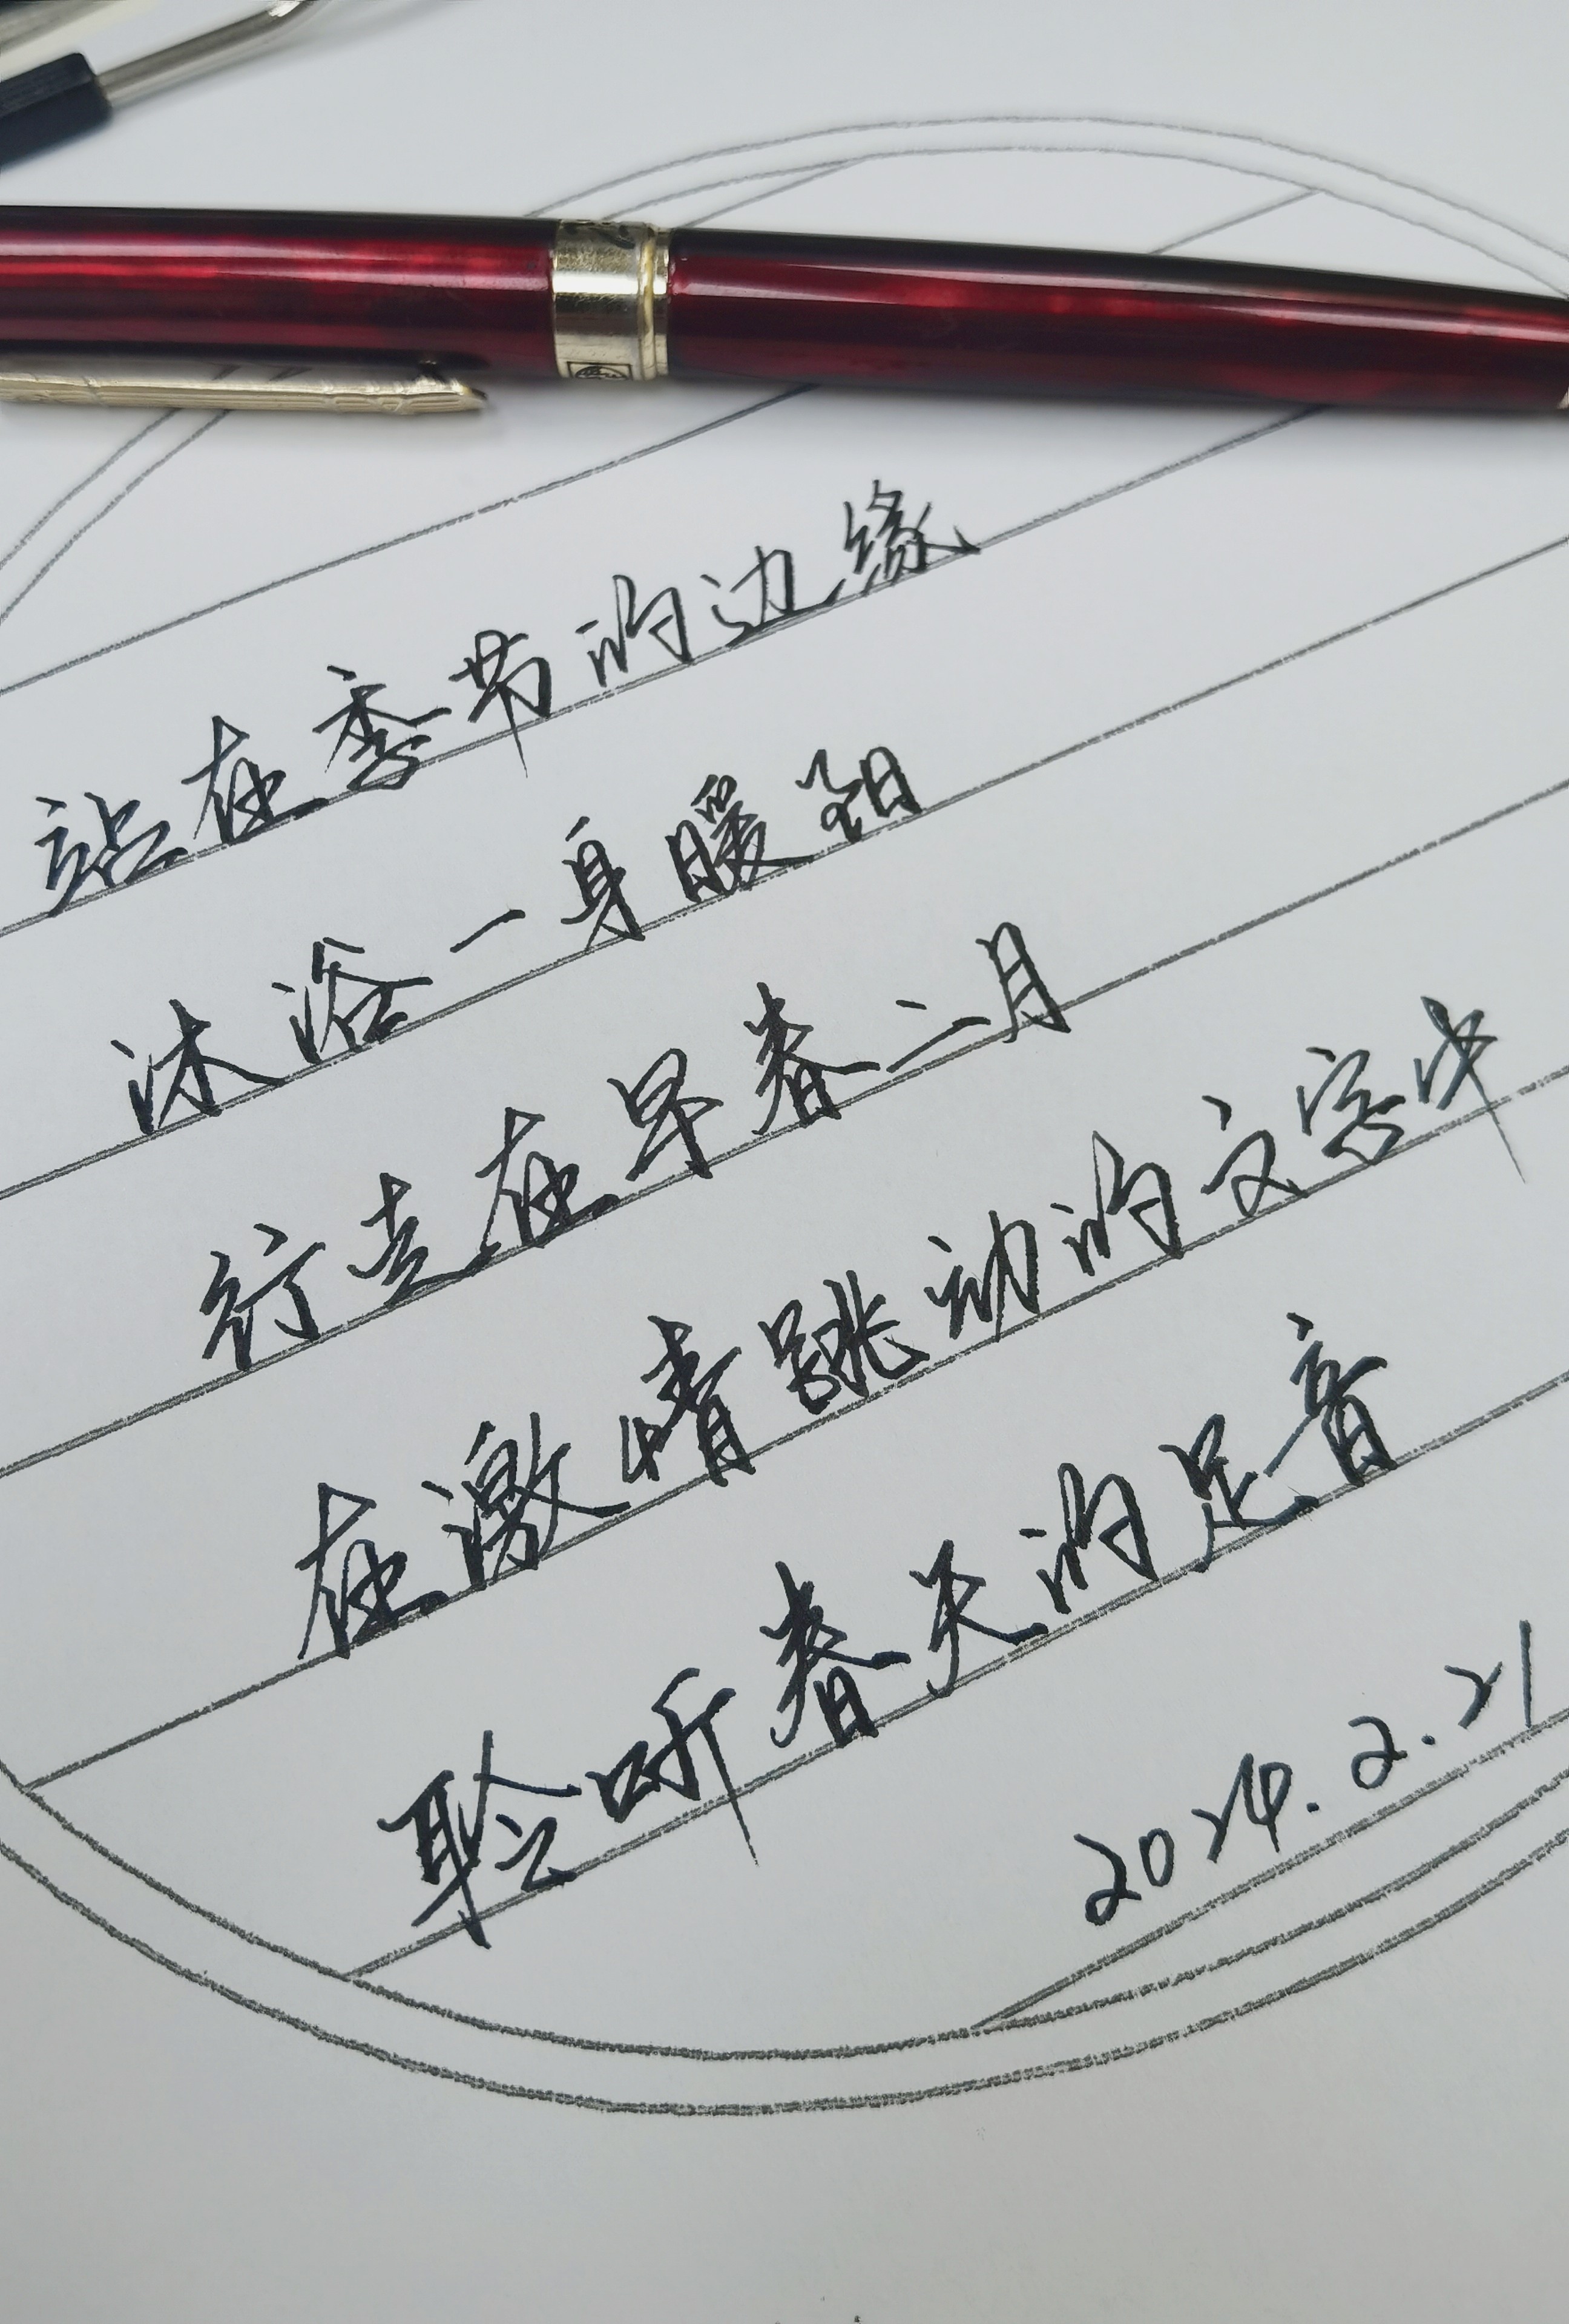 站在季节的边缘
沐浴一身暖阳
行走在早春二月
在激情跳动的文字中
聆听春天的足音
2024.2.21